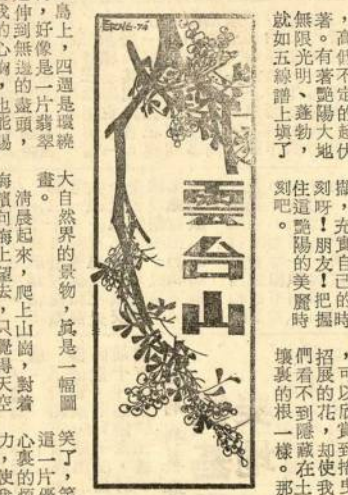 ，高低不定的起伏
著。有著艷陽大地
無限光明、蓬勃，
就如五線譜上填了
擷，充實自己的時
刻呀！朋友！把握
住這艷陽的美麗時
刻吧。
，可以欣賞到搖曳
招展的花，却使我
們看不到隱藏在土
壤裏的根一樣。那
雲台山
島上，四週是環繞
，好像是一片翡翠
伸到無邊的盡頭，
我的心胸，也能暢
大自然界的景物，眞是一幅圖
畫。
清晨起來，爬上山崗，對着
海濱向海上望去，只覺得天空
笑了，笑
這一片優
心裏的煩
力，使我